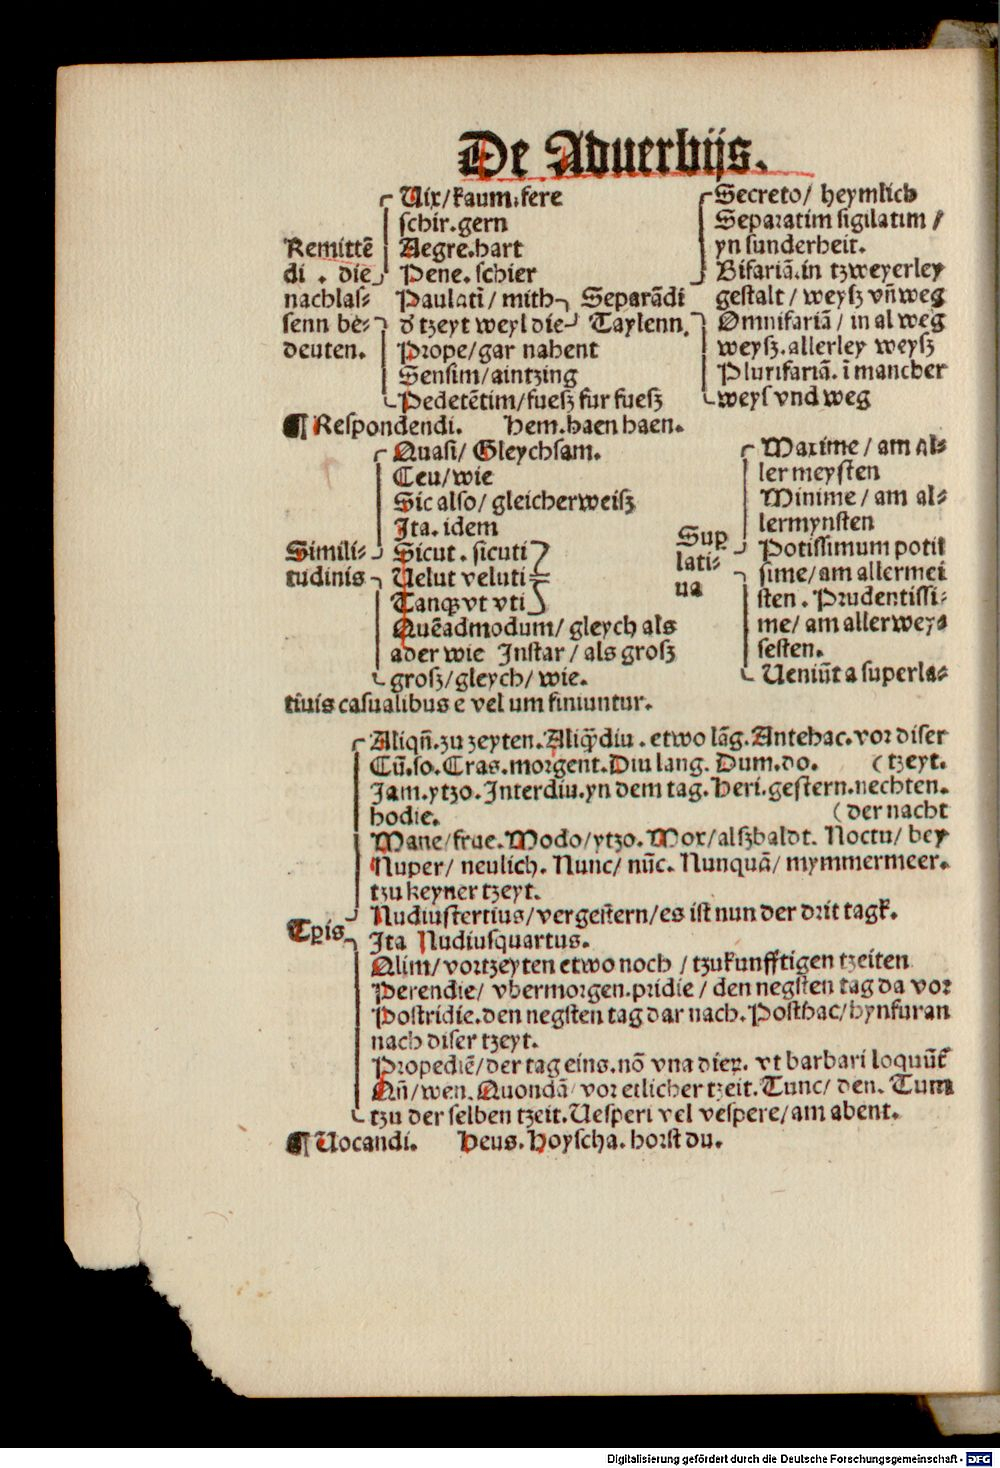 De Aduerbijs.
Remittē
di . die
nachlas⸗
senn be⸗
deuten.
Uix/kaum.fere
schir.gern
Aegre.hart
Pene. schier
Paulatī/ mith
d̕ tzeyt weyl die
Prope/gar nahent
Sensim/aintzing
Pedetētim/fuesz fur fuesz
Separādi
Taylenn.
Secreto/ heymlich
Separatim sigilatim /
yn sunderheit.
Bifariā.in tzweyerley
gestalt / weysz vn̄weg
Omnifariā / in al weg
weysz.allerley weysz
Plurifariā. ī mancher
weys vnd weg
¶ Respondendi. Hem.haen haen.
Simili⸗
tudinis
Quasi/ Gleychsam.
Ceu/wie
Sic also/ gleicherweisz
Ita. idem
Sicut . sicuti
Uelut veluti
Tanqꝫ vt vti
Quēadmodum/ gleych als
ader wie Instar / als grosz
grosz/gleych/ wie.
Sup
lati⸗
ua
Maxime / am al⸗
ler meysten
Minime / am al⸗
lermynsten
Potissimum potis
sime/am allermei
sten . Prudentissi⸗
me/ am allerwey⸗
sesten.
Ueniūt a superla⸗
tiuis casualibus e vel um finiuntur.
Tꝑis
Aliqn̄.zu zeyten.Aliqͣdiu . etwo lāg. Antehac.vor diser
Cū.so. Cras.morgent.Diu lang. Dum.do. (tzeyt.
Jam.ytzo.Interdiu.yn dem tag.Heri.gestern.nechten.
hodie. (der nacht
Mane/frue.Modo/ytzo.Mox/alszbaldt. Noctu/ bey
Nuper/ neulich. Nunc/ nūc. Nunquā/ mymmermeer.
tzu keyner tzeyt.
Nudiustertius/vergestern/es ist nun der drit tagk.
Ita Nudiusquartus.
Olim/vortzeyten etwo noch / tzukunfftigen tzeiten
Perendie/ vbermorgen.pridie / den negsten tag da vor
Postridie.den negsten tag dar nach.Posthac/hynfuran
nach diser tzeyt.
Propediē/der tag eins.nō vna dieꝝ. vt barbari loquūt̄
Qn̄/wen. Quondā/ vor etlicher tzeit.Tunc/ den. Tum
tzu der selben tzeit.Uesperi vel vespere/am abent.
¶ Uocandi. Heus. Hoyscha. horst du.
Digitalisierung gefördert durch die Deutsche Forschungsgemeinschaft - DFG